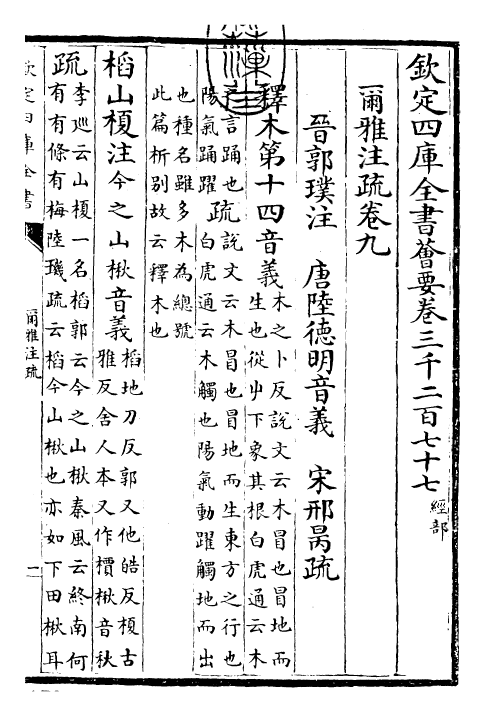 欽定四庫全書薈要卷三千二百七十七
經部
爾雅注疏卷九
晉郭璞注 唐陸德明音義 宋邢昺疏
釋木第十四音義
木之卜反說文云木冒也冒地而
生也從屮下象其根白虎通云木
言踊也
陽氣踊躍
疏
說文云木冒也冒地而生東方之行也
白虎通云木觸也陽氣動躍觸地而出
也種名雖多木為總號
此篇析别故云釋木也
槄山榎注今之山楸音義
槄地刀反郭又他皓反榎古
雅反舍人本又作檟楸音秋
疏
李廵云山榎一名槄郭云今之山楸秦風云終南何
有有條有梅陸璣疏云槄今山楸也亦如下田楸耳
欽定四庫全書
爾雅注疏
一